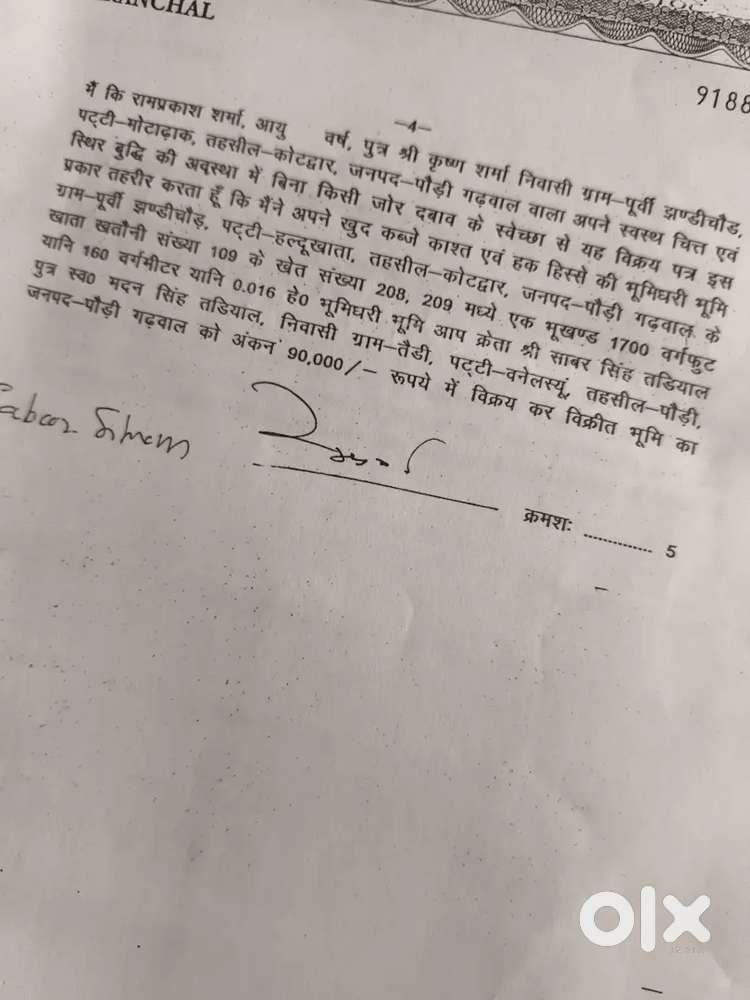 ANCHAL
9188
–4–
मैं कि रामप्रकाश शर्मा, आयु वर्ष, पुत्र श्री कृष्ण शर्मा निवासी ग्राम–पूर्वी झण्डीचौड,
पट्टी–मोटाढ़ाक, तहसील–कोटद्वार, जनपद–पौड़ी गढ़वाल वाला अपने स्वस्थ चित्त एवं
स्थिर बुद्धि की अवस्था में बिना किसी जोर दबाव के स्वेच्छा से यह विक्रय पत्र इस
प्रकार तहरीर करता हूँ कि मैंने अपने खुद कब्जे काश्त एवं हक हिस्से की भूमिघरी भूमि
ग्राम–पूर्वी झण्डीचौड़, पट्टी–हल्दूखाता, तहसील–कोटद्वार, जनपद–पौड़ी गढ़वाल के
खाता खतौनी संख्या 109 के खेत संख्या 208, 209 मध्ये एक भूखण्ड 1700 वर्गफुट
यानि 160 वर्गमीटर यानि 0.016 हे0 भूमिघरी भूमि आप क्रेता श्री साबर सिंह तडियाल
पुत्र स्व0 मदन सिंह तडियाल, निवासी ग्राम–तैडी, पट्टी–वनेलस्यूं, तहसील–पौड़ी,
जनपद–पौड़ी गढ़वाल को अंकन 90,000/– रूपये में विक्रय कर विक्रीत भूमि का
क्रमशः ............. 5
olx